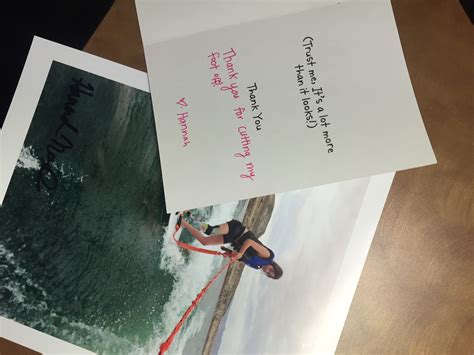 (Trust me, It's a lot more
than it looks!)
Thank You
Thank you for cutting my
foot off!
♡. Hannah